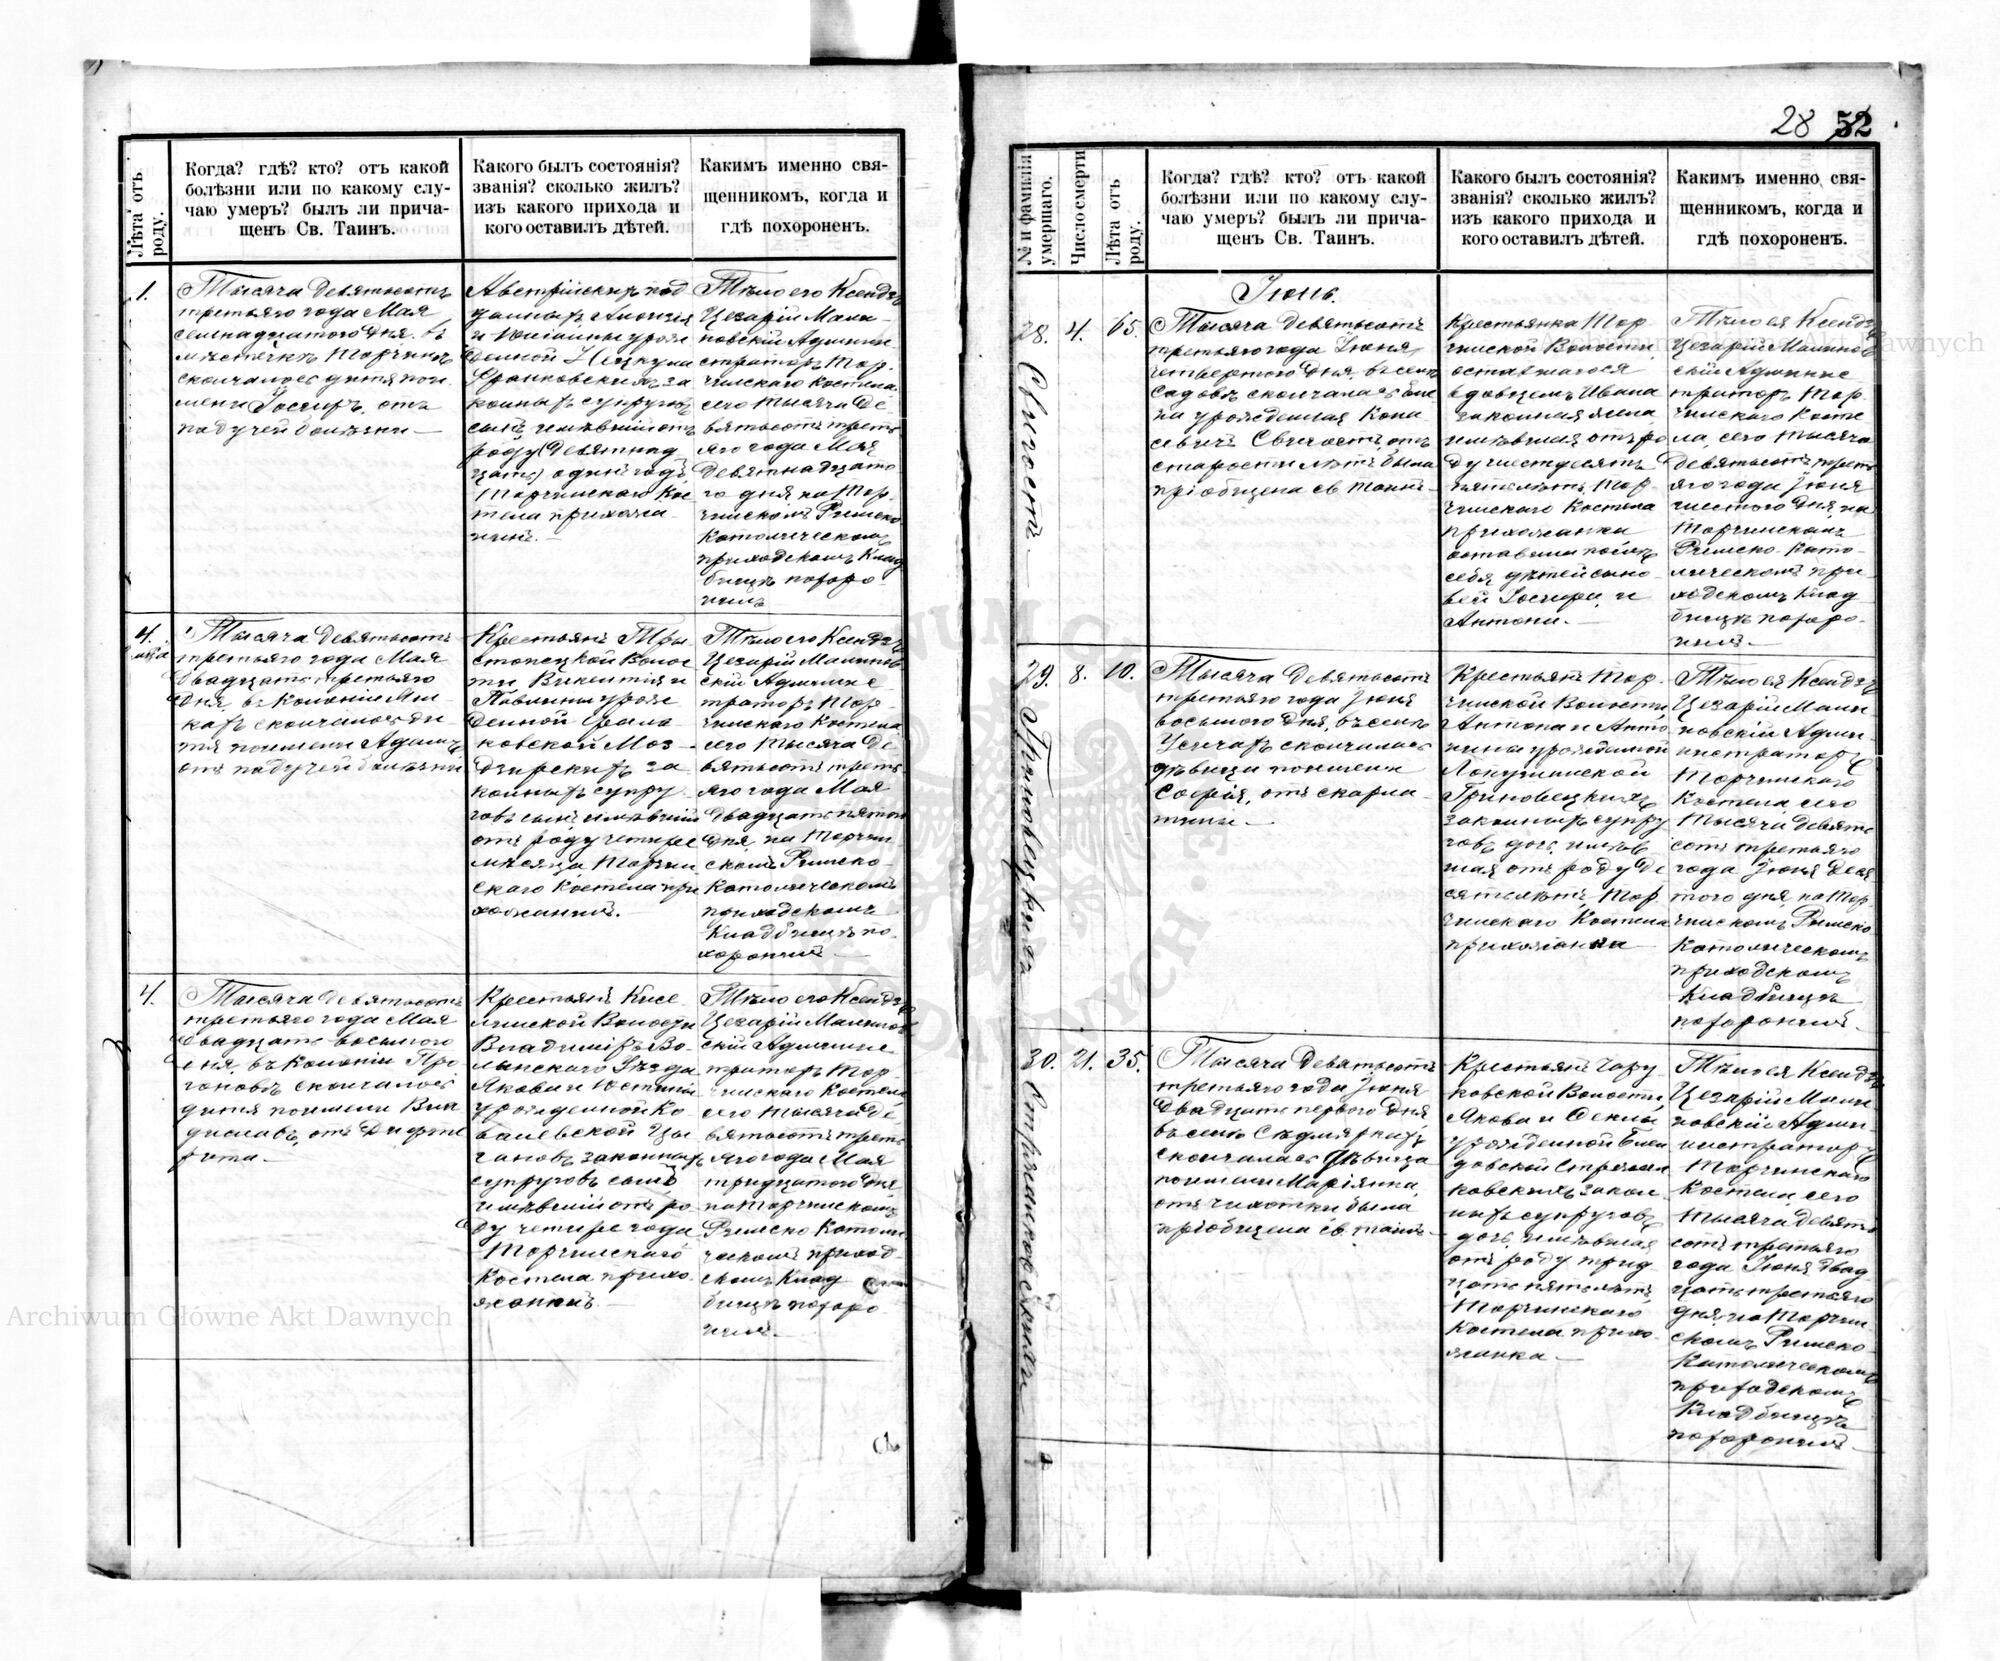 28 52
Лѣта отъ
роду.
Когда? гдѣ? кто? отъ какой
болѣзни или по какому слу-
чаю умеръ? былъ ли прича-
щенъ Св. Таинъ.
Какого былъ состоянія?
званія? сколько жилъ?
изъ какого прихода и
кого оставилъ дѣтей.
Какимъ именно свя-
щенникомъ, когда и
гдѣ похороненъ.
1.
Тысяча девятьсотъ
третьяго года Мая
семнадцатого дня въ
мѣстечкѣ Торчинѣ
скончалось дитя по и
мени Іосифъ, отъ
падучей болѣзни —
Австрійскихъ под
данныхъ
и урож
денной
Франковскихъ за
конныхъ супруговъ
сынъ имѣвшій отъ
роду (девятнад
цать) одинъ годъ
Торчинскаго Кос
тела прихожа
нинъ. —
Тѣло его Ксендзъ
Цезарій Мали-
новскій Админи
страторъ Тор-
чинскаго Костела
сего тысяча де
вятьсотъ треть
яго года Мая
девятнадцато
го дня на Тор-
чинскомъ Римско
Католическомъ
приходскомъ Клад
бищѣ похоро-
нилъ
4.
Тысяча девятьсотъ
третьяго года Мая
двадцать третьяго
дня, въ Колоніи
скончалось ди
тя по имени Адамъ,
отъ падучей болѣзни
Крестьянъ
Волос
ти Викентія и
Павлины урож
денной
ковской Моз-
дзирскихъ за
конныхъ супру
говъ сынъ имѣвшій
отъ роду четыре
мѣсяца, Торчин
скаго Костела при
хожанинъ. —
Тѣло его Ксендзъ
Цезарій Малинов
скій Админис
траторъ Тор-
чинскаго Костела
сего тысяча де
вятьсотъ треть
яго года Мая
двадцать пятого
дня, на Торчин
скомъ Римско-
Католическомъ
приходскомъ
Кладбищѣ по-
хоронилъ —
4.
Тысяча девятьсотъ
третьяго года Мая
двадцать восьмого
дня, въ Колоніи
скончалось
дитя по имени Вла
диславъ, отъ Дифте
рита. —
Крестьянъ Кисе
линской Волости
Владиміръ Во
лынскаго Уѣзда
Якова и Юстины
урожденной Ко
валевской Цы
гановъ законныхъ
супруговъ сынъ
имѣвшій отъ ро
ду четыре года
Торчинскаго
Костела прихо
жанинъ. —
Тѣло его Ксендзъ
Цезарій Малинов
скій Админис
траторъ Тор-
чинскаго Костела
сего тысяча де
вятьсотъ треть
яго года Мая
тридцатого дня
на Торчинскомъ
Римско Католи
ческомъ приход-
скомъ Клад
бищѣ похоро
нилъ. —
№ и фамилія
умершаго.
Число смерти
Лѣта отъ
роду.
Когда? гдѣ? кто? отъ какой
болѣзни или по какому слу-
чаю умеръ? былъ ли прича-
щенъ Св. Таинъ.
Какого былъ состоянія?
званія? сколько жилъ?
изъ какого прихода и
кого оставилъ дѣтей.
Какимъ именно свя-
щенникомъ, когда и
гдѣ похороненъ.
Іюнь.
28. 4. 65.
Свигостъ —
Тысяча девятьсотъ
третьяго года Іюня
четвертого дня, въ селѣ
Садовъ скончалась
на урожденная
Свигостъ, отъ
старости лѣтъ была
пріобщена св таинъ —
Крестьянка Тор-
чинской Волости,
оставшагося
вдовцемъ Ивана
законная жена,
имѣвшая отъ ро
ду шестдесятъ
пять лѣтъ, Тор-
чинскаго Костела
прихожанка
оставила послѣ
себя дѣтей сыно-
вей Іосифа, и
Антони. —
Тѣло ея Ксендзъ
Цезарій Малинов
скій Админис
траторъ Тор-
чинскаго Косте
ла, сего тысяча
девятьсотъ треть
яго года Іюня
шестого дня, на
Торчинскомъ
Римско-Като-
лическомъ при
ходскомъ Клад
бищѣ похоро-
нилъ. —
29. 8. 10.
Гриновецкая
Тысяча девятьсотъ
третьяго года Іюня
восьмого дня, въ селѣ
Усичахъ скончалась
дѣвица по имени
Софія, отъ скарла
тины. —
Крестьянъ Тор-
чинской Волости
Антона и Анто
нины урожденной
Лопушинской
Гриновецкихъ
законныхъ супру
говъ дочь, имѣв
шая отъ роду де
сять лѣтъ, Тор
чинскаго Костела
прихожанка —
Тѣло ея Ксендзъ
Цезарій Мали
новскій Адми
нистраторъ
Торчинскаго
Костела сего
тысяча девять
сотъ третьяго
года Іюня деся
того дня, на Тор-
чинскомъ Римско
Католическомъ
приходскомъ
Кладбищѣ
похоронилъ. —
30. 21. 35.
Стрѣлковская
Тысяча девятьсотъ
третьяго года Іюня
двадцать первого дня
въ селѣ Седмяркахъ
скончалась дѣвица
по имени Маріянна,
отъ чахотки была
пріобщена св. таинъ —
Крестьянъ Чару
ковской Волости
Якова и Феклы
урожденной
довской
ковскихъ закон
ныхъ супруговъ
дочь, имѣвшая
отъ роду трид
цать пять лѣтъ
Торчинскаго
Костела прихо-
жанка —
Тѣло ея Ксендзъ
Цезарій Мали
новскій Адми
нистраторъ
Торчинскаго
Костела, сего
тысяча девять
сотъ третьяго
года Іюня двад
цать третьяго
дня, на Торчин
скомъ Римско-
Католическомъ
приходскомъ
Кладбищѣ
похоронилъ —
Archiwum Główne Akt Dawnych
Archiwum Główne Akt Dawnych